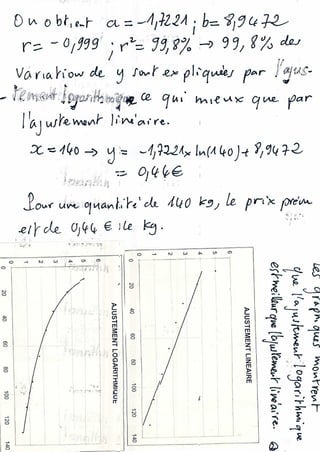 On obtient a = -1,7221 ; b = 8,9472
r = -0,999 ; r² = 99,8% → 99,8% des
variations de y sont expliquées par l'ajus-
tement logarithmique ce qui mieux que par
l'ajustement linéaire.
x = 140 → y = -1,7221 x ln(140) + 8,9472
= 0,44€
Pour une quantité de 140 kg, le prix prévu
est de 0,44 € le kg.
AJUSTEMENT LOGARITHMIQUE
0 1 2 3 4 5 6
0 20 40 60 80 100 120 140
AJUSTEMENT LINEAIRE
0 1 2 3 4 5 6
0 20 40 60 80 100 120 140
Les graphiques montrent
que l'ajustement logarithmique
est meilleur que l'ajustement linéaire.